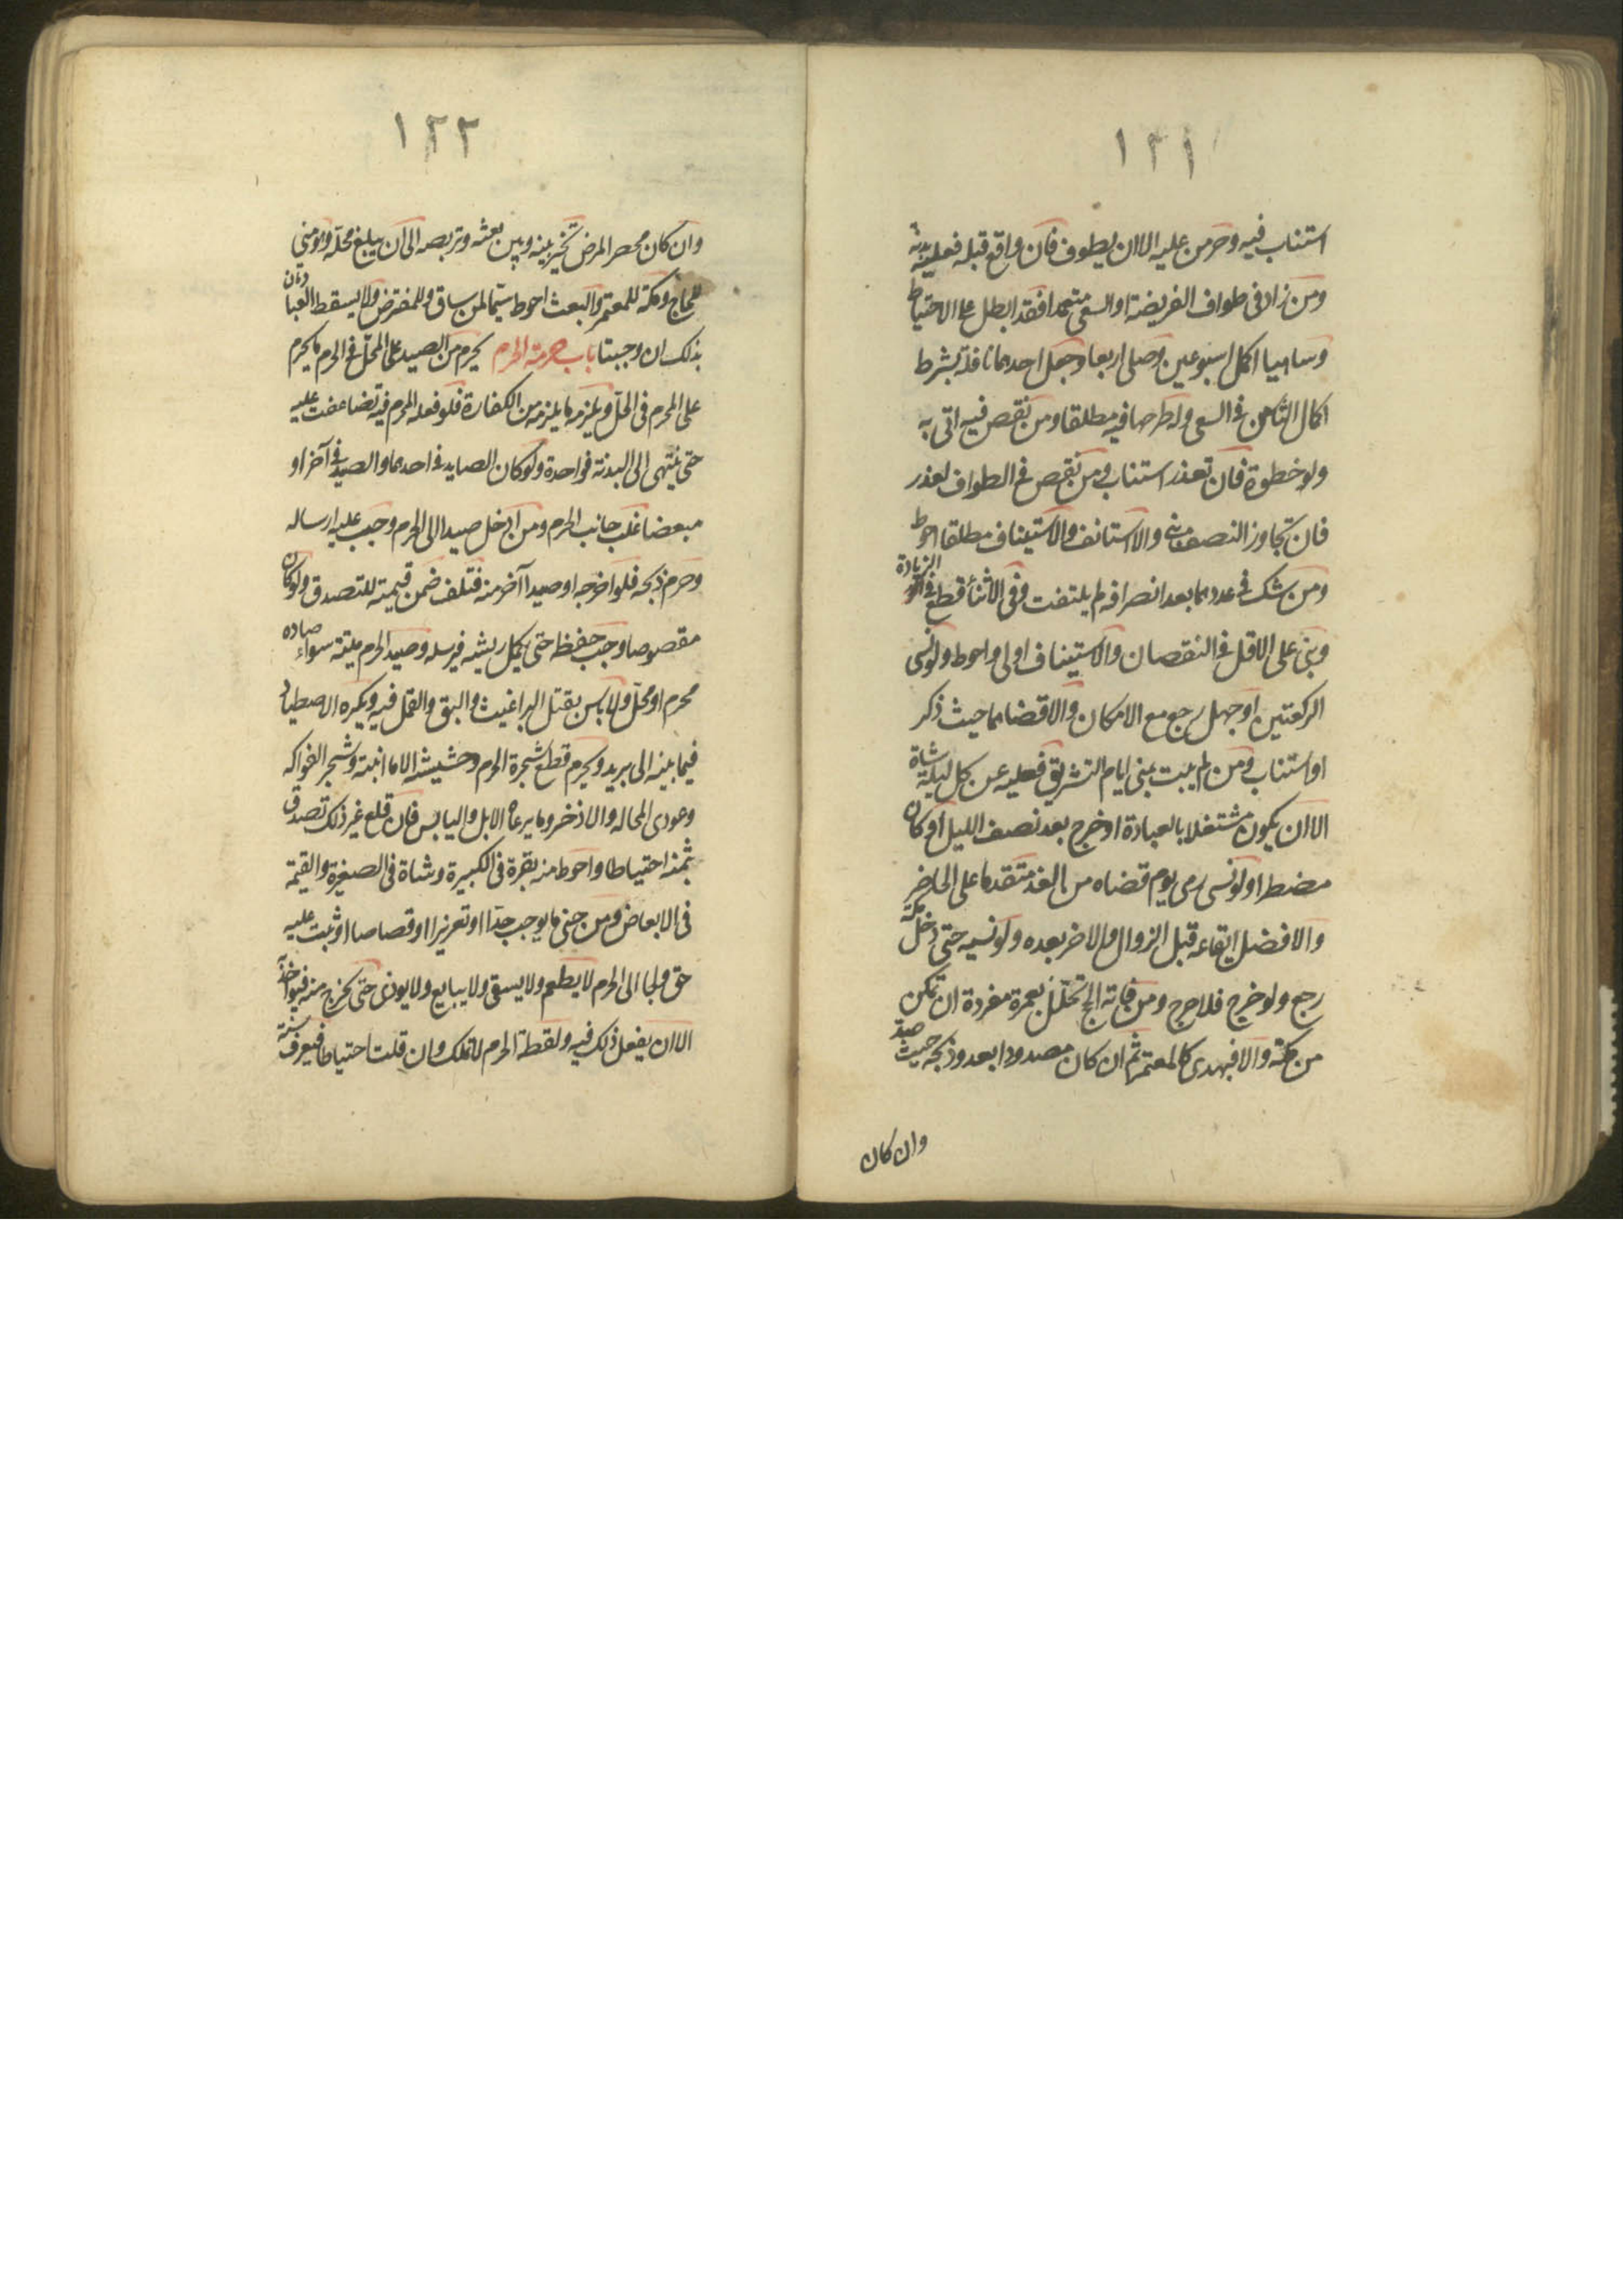 ١٢١
استناب فيه وحرمن عليه الا ان يطوف فان واقع قبله فعليه بدنة
ومن زاد في طواف الفريضة او السعى متعمدا فقد ابطل على الاحتياط
وساهيا اكمل اسبوعين وصلى اربعا وجعل احدهما نافلة بشرط
اكمال الثامن في السعى واطرحها فيه مطلقا ومن نقص فيه اتى به
ولو خطوة فان تعذر استناب ومن نقص في الطواف لعذر
فان تجاوز النصف بنى والا استانف والاستيناف مطلقا احوط
ومن شك في عددهما بعد انصرافه لم يلتفت وفى الاثناء قطع في الزيادة
وبنى على الاقل في النقصان والاستيناف اولى واحوط ولو نسى
الركعتين او جهل رجع مع الامكان والا قضاهما حيث ذكر
او استناب ومن لم يبت بمنى ايام التشريق فعليه عن كل ليلة شاة
الا ان يكون مشتغلا بالعبادة او خرج بعد نصف الليل او كان
مضطرا ولو نسى رمى يوم قضاه من الغد متقدما على الحاضر
والافضل ايقاعه قبل الزوال والاخر بعده ولو نسيه حتى دخل مكة
رجع ولو خرج فلا حرج ومن فاته الحج تحلل بعمرة مفردة ان تمكن
من مكة والا فبهدى كالمعتمر ثم ان كان مصدودا بعدو ذبحه حيث صد
وان كان
١٢٢
وان كان محصرا لمرض تخير بينه وبين بعثه وتربصه الى ان يبلغ محله وهو منى
للحاج ومكة للمعتمر والبعث احوط سيما لمن ساق وللمفترض ولا يسقط العبادتان
بذلك ان وجبتا باب حرمة الحرم يحرم من الصيد على المحل في الحرم ما يحرم
على المحرم في الحل ويلزمه ما يلزمه من الكفارة فلو فعله المحرم فيه تضاعفت عليه
حتى ينتهى الى البدنة فواحدة ولو كان الصايد في احدهما والصيد في آخر او
مبعضا غلب جانب الحرم ومن ادخل صيدا الى الحرم وجب عليه ارساله
وحرم ذبحه فلو اخرجه او صيدا آخر منه فتلف ضمن قيمته للتصدق ولو كان
مقصوصا وجب حفظه حتى يكمل ريشه فيرسله وصيد الحرم ميتة سواء صاده
محرم او محل ولا باس بقتل البراغيث والبق والقمل فيه ويكره الاصطياد
فيما بينه الى بريد ويحرم قطع شجرة الحرم وحشيشه الا ما انبته وشجر الفواكه
وعودى المحاله والاذخر وما يرعاه الابل واليابس فان قلع غير ذلك تصدق
بثمنه احتياطا واحوط منه بقرة في الكبيرة وشاة في الصغيرة والقيمة
في الابعاض ومن جنى ما يوجب حدا او تعزيرا او قصاصا او ثبت عليه
حق ولجا الى الحرم لا يطعم ولا يسقى ولا يبايع ولا يوذى حتى يخرج منه فيواخذ
الا ان يفعل ذلك فيه ولقطة الحرم لا تملك وان قلت احتياطا فيعرف سنة